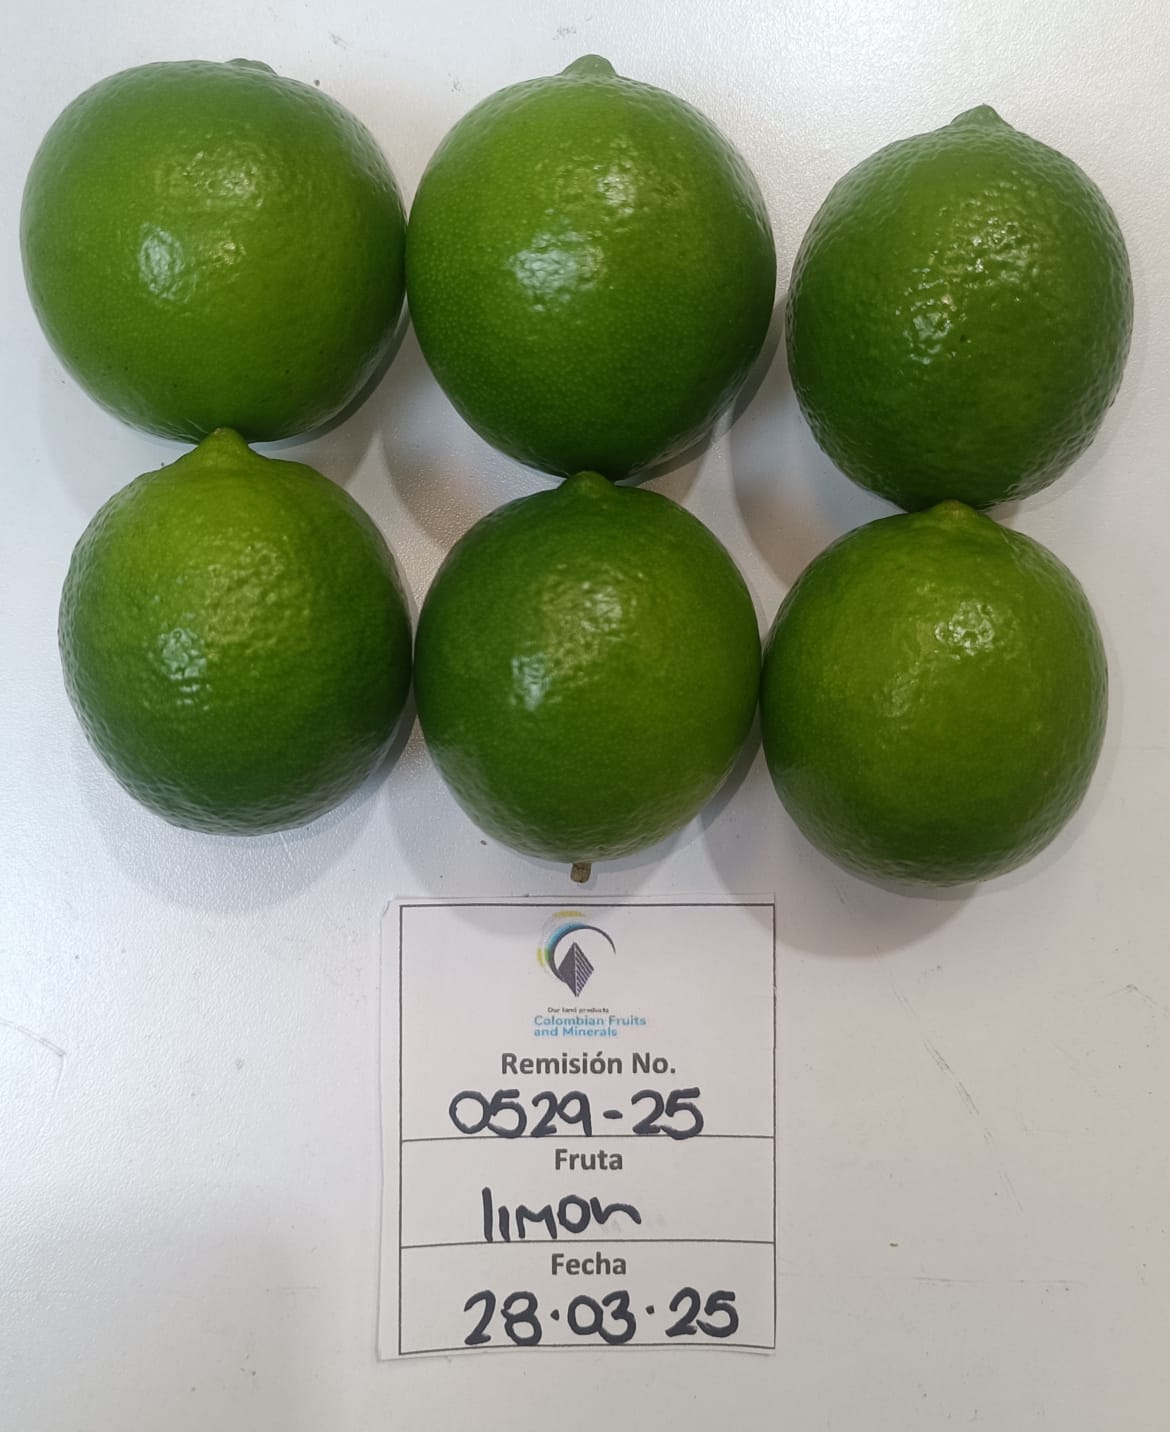 Our land products
Colombian Fruits
and Minerals
Remisión No.
0529-25
Fruta
limon
Fecha
28.03.25